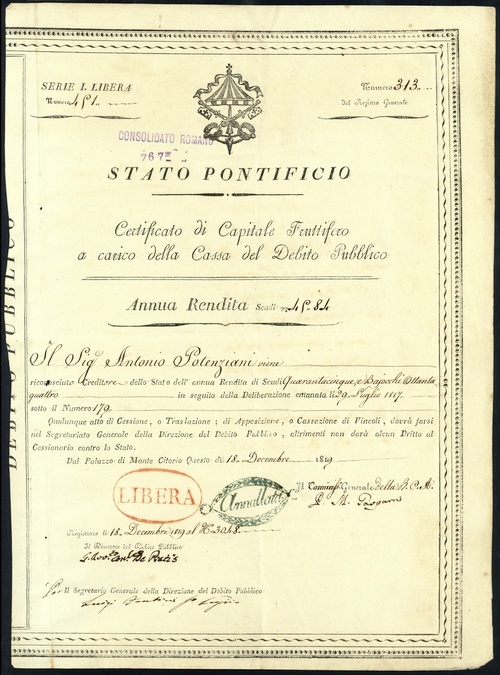 SERIE I. LIBERA
Numero 451
Numero 313
del Registro Generale
CONSOLIDATO ROMANO
767
STATO PONTIFICIO
Certificato di Capitale Fruttifero
a carico della Cassa del Debito Pubblico
Annua Rendita Scudi 45-84
Il Sig.r Antonio Potenziani viene
riconosciuto Creditore dello Stato dell'annua Rendita di Scudi Quarantacinque, e Bajocchi Ottanta
quattro in seguito della Deliberazione emanata li 29 Luglio 1817.
sotto il Numero 179.
Qualunque atto di Cessione, o Traslazione; di Apposizione, o Cassazione di Vincoli, dovrà farsi
nel Segretariato Generale della Direzione del Debito Pubblico, altrimenti non darà alcun Dritto al
Cessionario contro lo Stato.
Dal Palazzo di Monte Citorio Questo dì 18. Decembre 1819
LIBERA
Annullato
Il Commiss. Generale della R.C.A.
Registrato li 18. Decembre 1819 al N. 3048.
Il Direttore del Debito Pubblico
Per Il Segretario Generale della Direzione del Debito Pubblico
DEBITO PUBBLICO